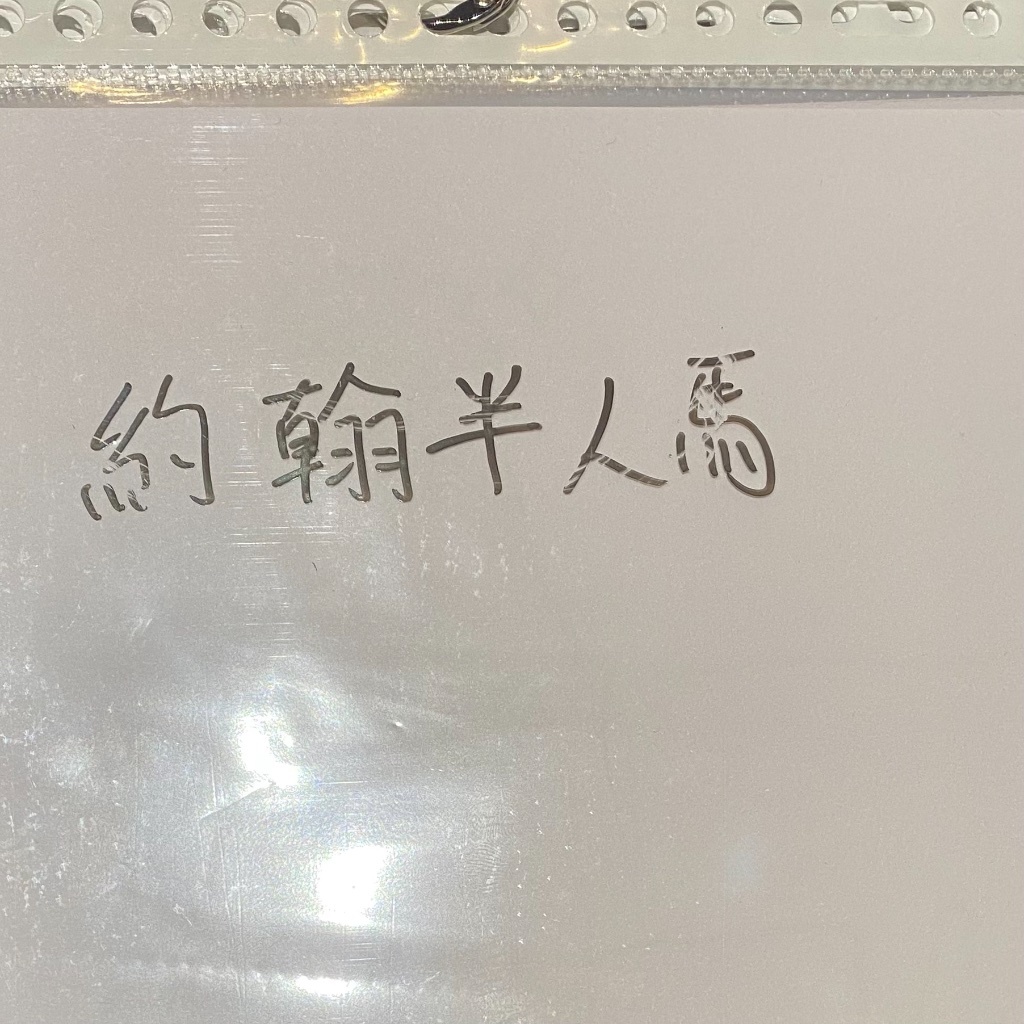 約翰半人馬